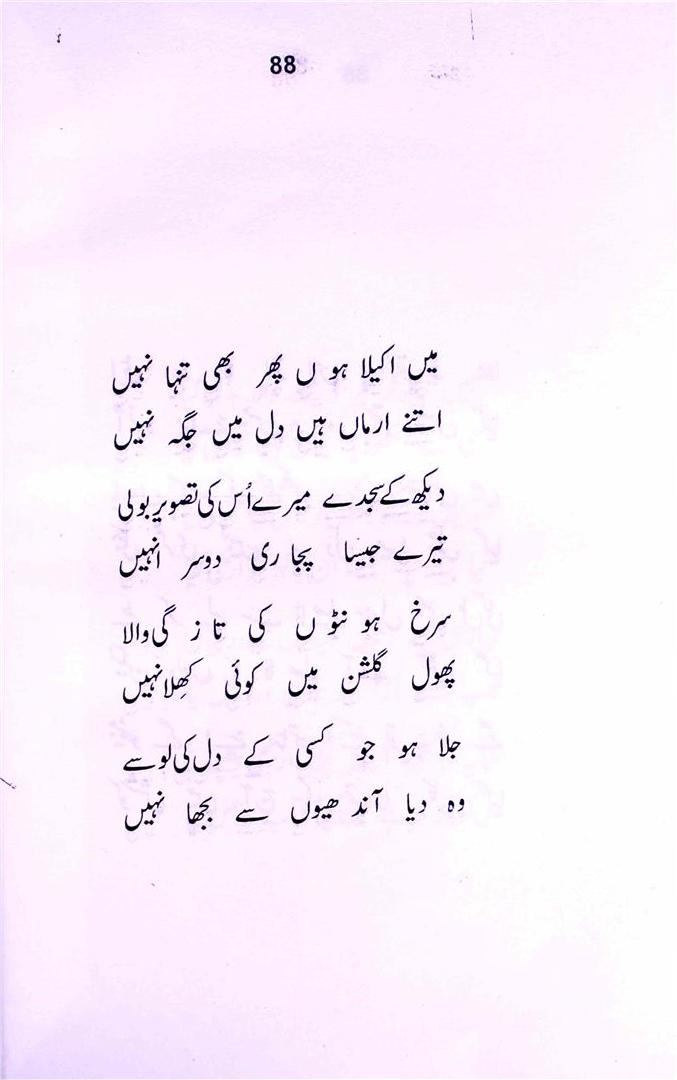 88
میں اکیلا ہوں پھر بھی تنہا نہیں
اتنے ارماں ہیں دل میں جگہ نہیں
دیکھ کے سجدے میرے اُس کی تصویر بولی
تیرے جیسا پجاری دوسرا نہیں
سرخ ہونٹوں کی تازگی والا
پھول گلشن میں کوئی کھِلا نہیں
جلا ہو جو کسی کے دل کی لو سے
وہ دیا آندھیوں سے بجھا نہیں